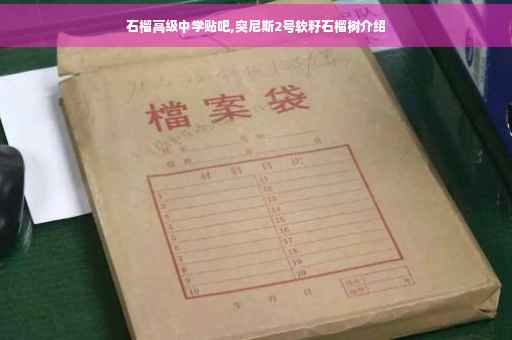 石榴高级中学贴吧,突尼斯2号软籽石榴树介绍
檔案袋
材料目次
1 11
2 12
3 13
4 14
5 15
6 16
7 17
8 18
9 19
10 20
年 月 日